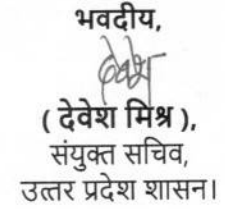 भवदीय,
देवेश
( देवेश मिश्र ),
संयुक्त सचिव,
उत्तर प्रदेश शासन।